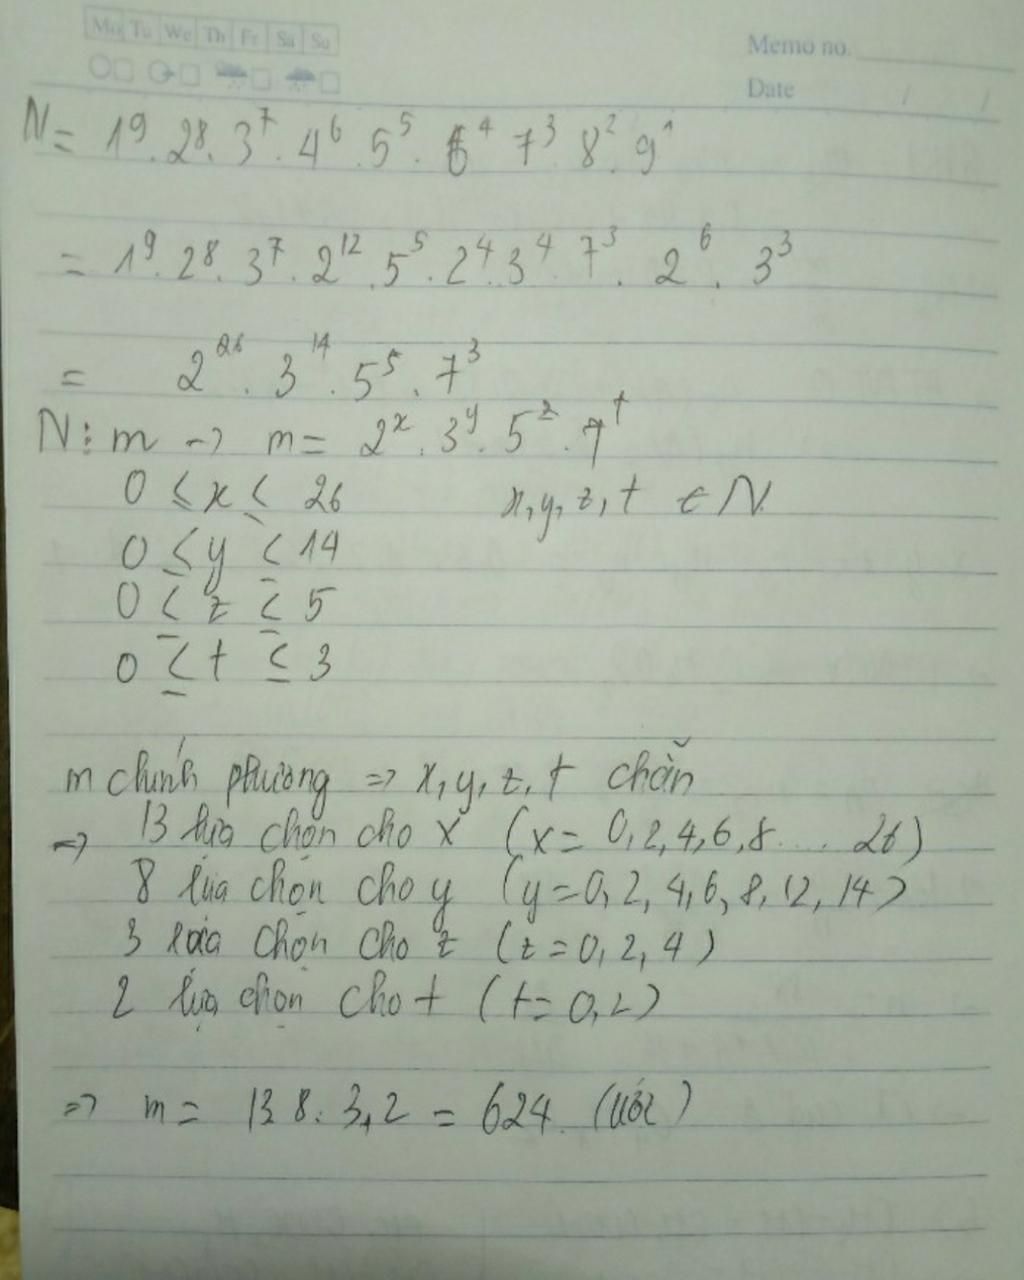 Mo Tu We Th Fr Sa Su
Memo no.
Date / /
N = 1⁹ . 2⁸ . 3⁷ . 4⁶ . 5⁵ . 6⁴ 7³ 8² . 9¹
= 1⁹ . 2⁸ . 3⁷ . 2¹² . 5⁵ . 2⁴ . 3⁴ . 7³ . 2⁶ . 3³
= 2²⁶ . 3¹⁴ . 5⁵ . 7³
N ⋮ m → m = 2ˣ . 3ʸ . 5ᶻ . 7ᵗ
0 ≤ x ≤ 26 x, y, z, t ∈ N
0 ≤ y ≤ 14
0 ≤ z ≤ 5
0 ≤ t ≤ 3
m chính phương => x, y, z, t chẵn
=> 13 lựa chọn cho x (x = 0, 2, 4, 6, 8 .... 26)
8 lựa chọn cho y (y = 0, 2, 4, 6, 8, 12, 14)
3 lựa chọn cho z (z = 0, 2, 4)
2 lựa chọn cho t (t = 0, 2)
=> m = 13.8.3,2 = 624 (ước)